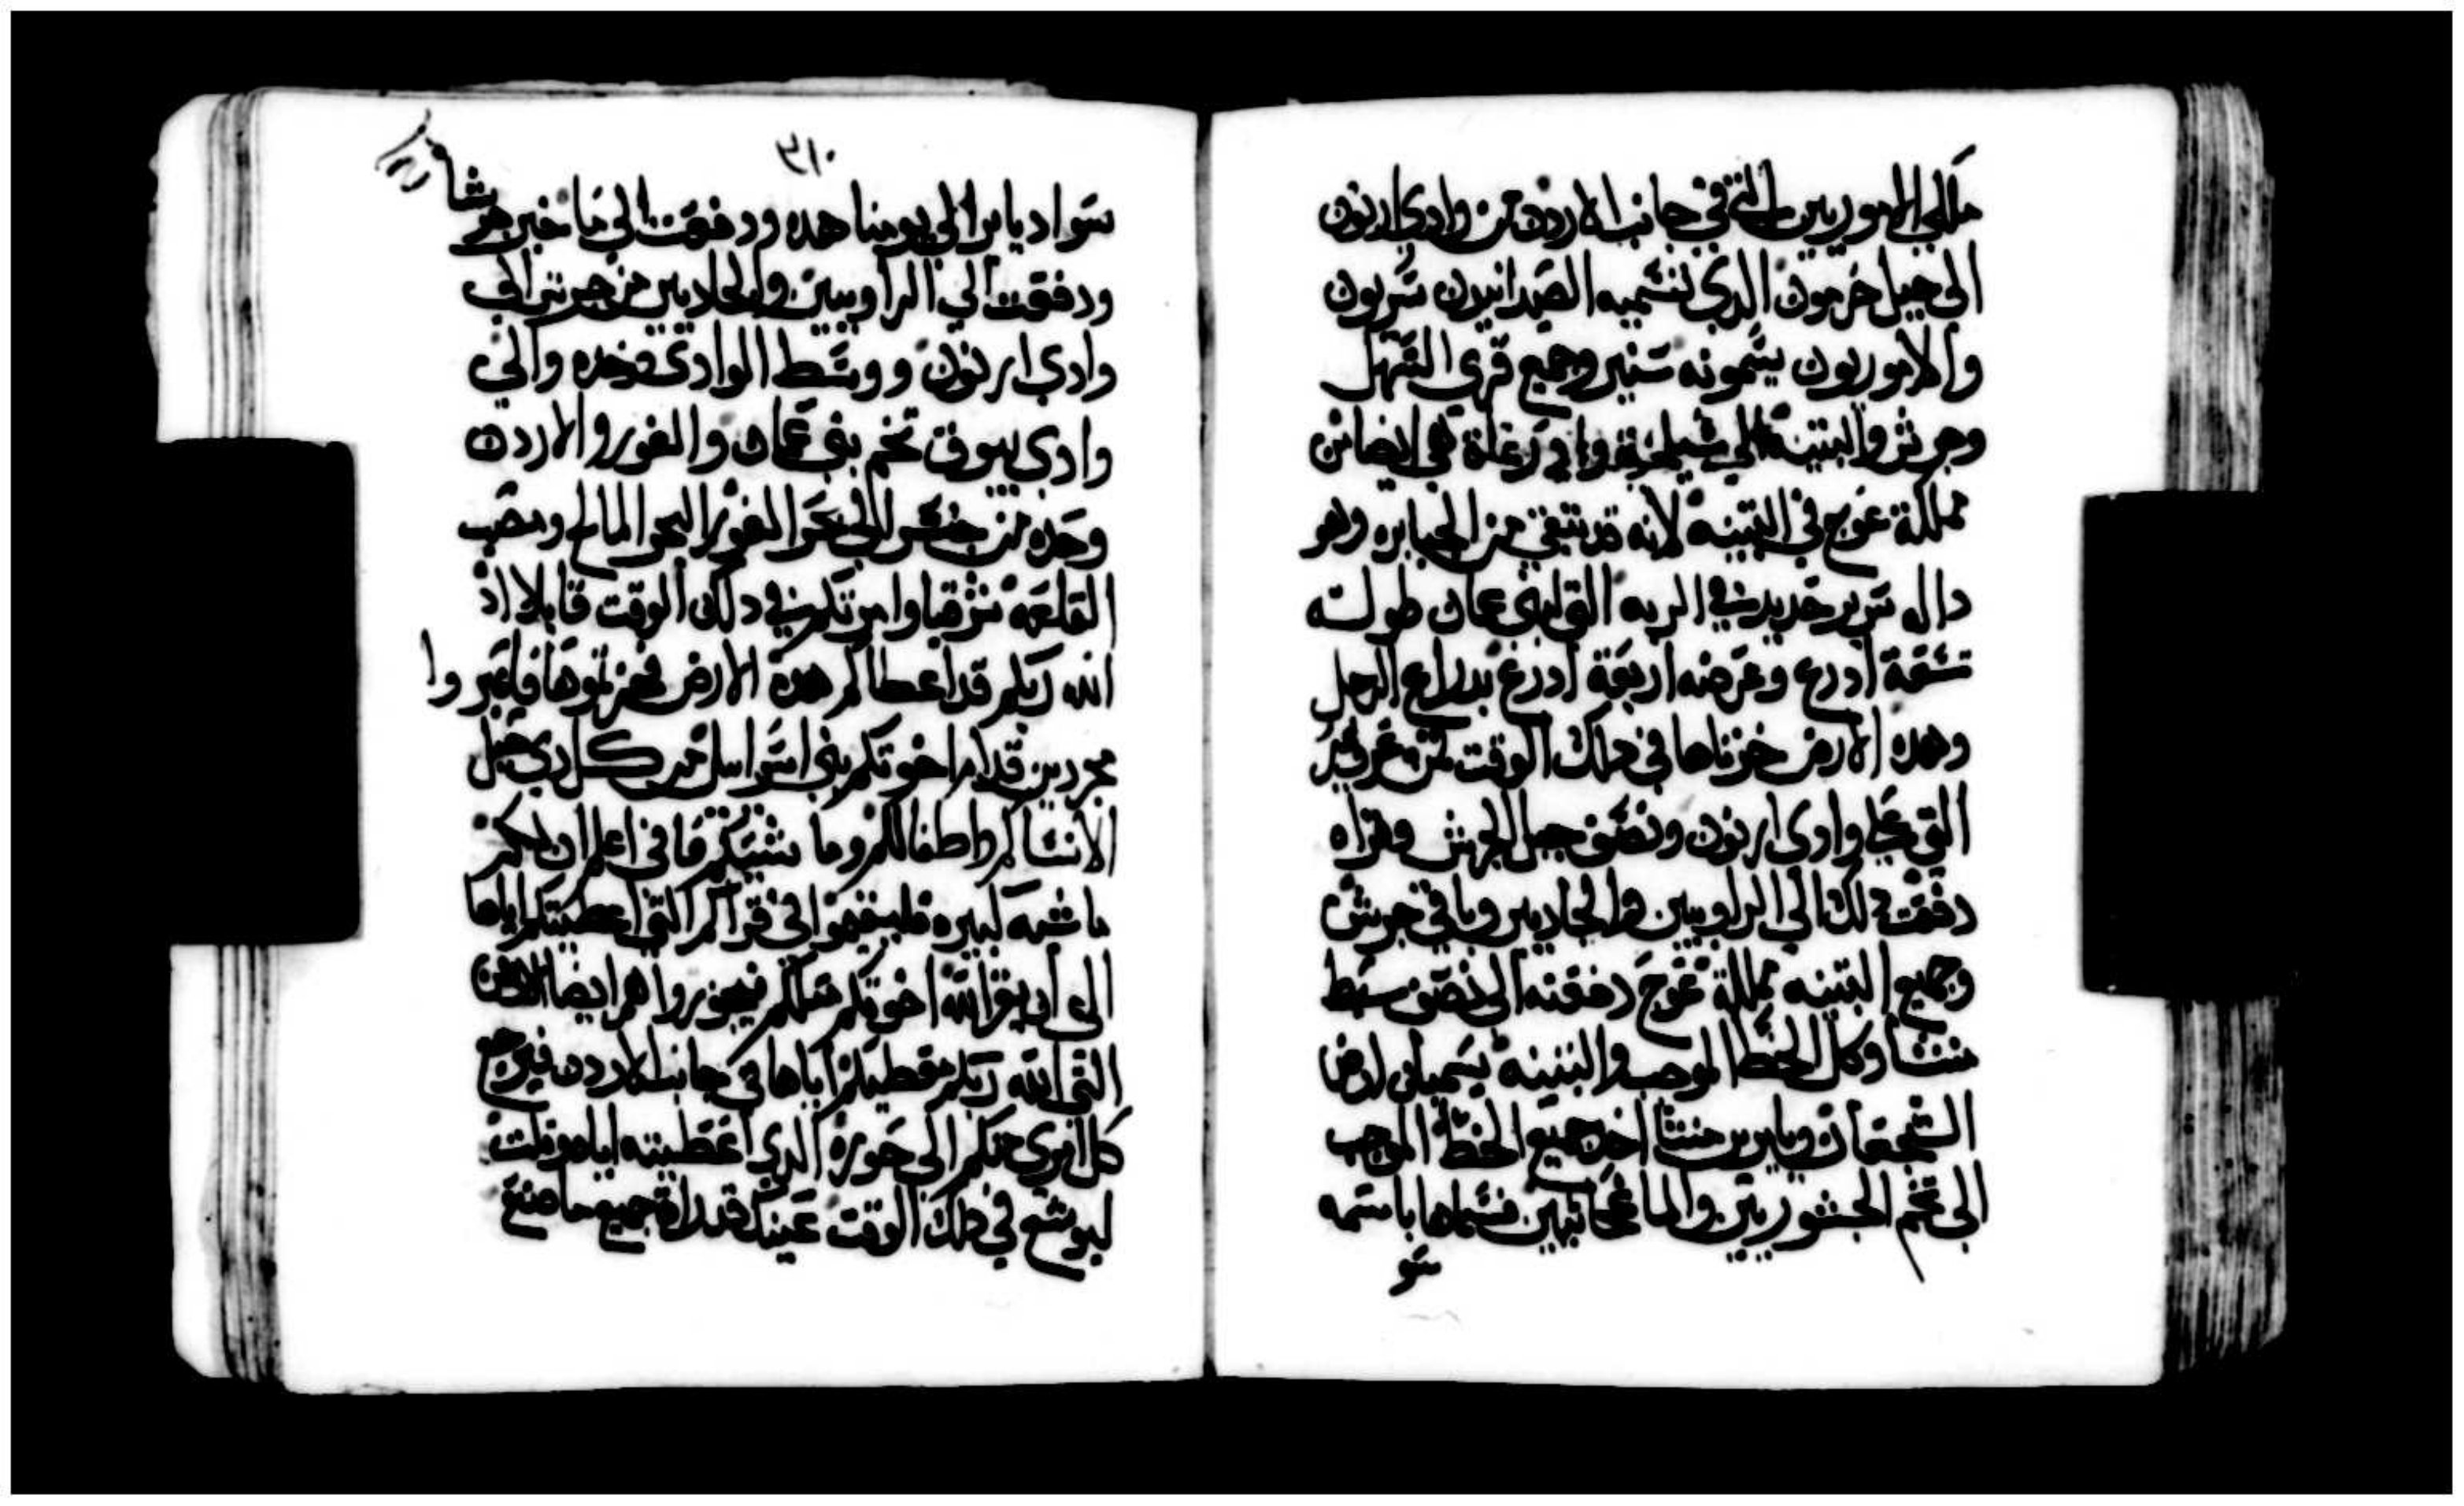 ملكي الاموريين التي في جانب الاردن من وادي ارنون
الى جبل حرمون الدي تسميه الصيدانيون سريون
والاموريون يسمونه سنير وجميع قرى السهل
وجرش والبتنيه الي واد رعاة هي ايضا من
مملكة عوج في البتنيه لانه قد تبقي من الجبابره وهو
دا له سرير حديد في الربه التي لبني عمان طوله
تسعة ادرع وعرضه اربعة ادرع بدراع الرجل
وهده الارض حزناها في دلك الوقت من عرعير
التي على وادي ارنون ونصف جبل الجرش وقراه
دفعت دلك الي الراوبيين والجاديين وباقي جرش
وجميع البتنيه مملكة عوج دفعته الى نصف سبط
منشا وكل الخط الموجب والبتنيه يسميان ارض
الشجعان ويايير بن منشا اخد جميع الخط الموجب
الى تخم الجشوريين والماعخاتيين فسماها باسمه
سو
٣١٠
سواد يابر الي يومنا هده ودفعت الي ماخير بن منشا
ودفعت الي الراوبيين والجاديين من جرش الي
وادي ارنون ووسط الوادي وحده والي
وادي يبوق تخم بني عمان والغور والاردن
وحده من جنسر الي بحر الغور البحر المالح ومصب
القلعه شرقيا وامرتكم في دلك الوقت قايلا اد
الله ربكم قد اعطاكم هده الارض فحزتموها فاعبروا
مجردين قدام اخوتكم بني اسراييل من كل دي حيل
الا نساكم واطفالكم وماشيتكم فاني اعلم ان لكم
ماشيه كبيره فليقيموا في قراكم التي اعطيتكم اياها
الى ان يقر الله اخوتكم متلكم فيحوزوا هم ايضا الارض
التي الله ربكم معطيكم اياها في جانب الاردن فيرجع
كل امري منكم الى حوزه الدي اعطيته اياه وقلت
ليوشع في دلك الوقت عينك قد راة جميع ما صنع